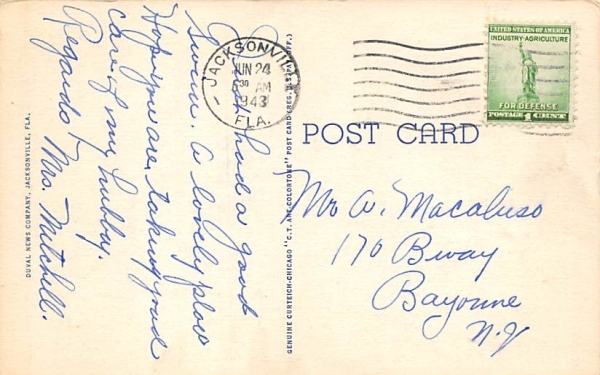 Just had a good
swim. A lovely place
Hope you are taking good
care of my hubby.
Regards Mrs. Mitchell.
DUVAL NEWS COMPANY, JACKSONVILLE, FLA.
GENUINE CURTEICH-CHICAGO "C.T. ART-COLORTONE" POST CARD (REG. U.S. PAT. OFF.)
JACKSONVILLE
JUN 24
30 AM
1943
FLA.
UNITED STATES OF AMERICA
INDUSTRY-AGRICULTURE
FOR DEFENSE
POSTAGE 1 CENT
POST CARD
Mr A. Macaluso
170 Bway
Bayonne
N.Y